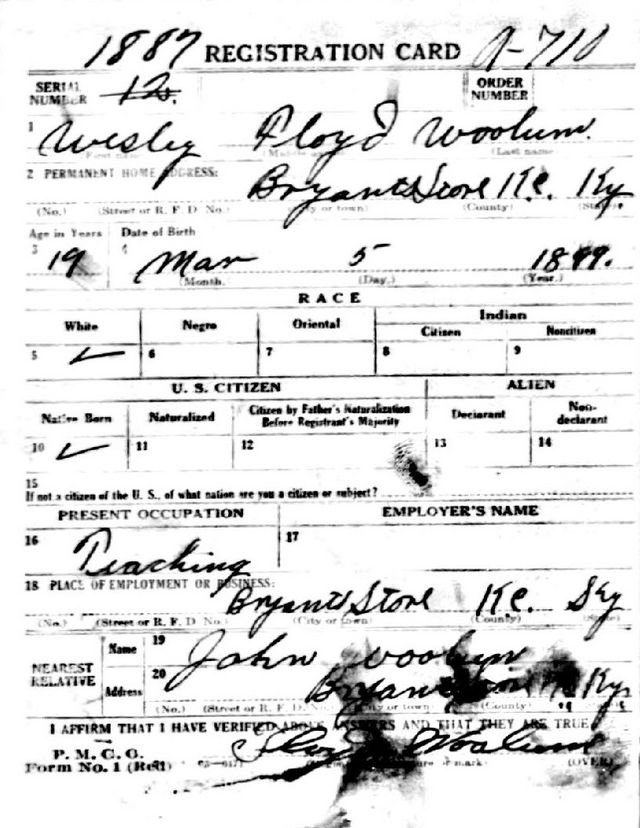 1887 REGISTRATION CARD A-710
SERIAL NUMBER 120. ORDER NUMBER
1 Wesley Floyd Woolum.
(First name) (Middle name) (Last name
2 PERMANENT HOME ADDRESS: Bryants Store Ky
(No.) (Street or R. F. D No.) (City or town) (County) (State)
Age in Years Date of Birth
3 19 4 Mar 5 1899.
(Month.) (Day.) (Year.)
RACE
White Negro Oriental Indian
Citizen Noncitizen
5 ✓ 6 7 8 9
U. S. CITIZEN ALIEN
Native Born Naturalized Citizen by Father's Naturalization Before Registrant's Majority Declarant Non-declarant
10 ✓ 11 12 13 14
15
If not a citizen of the U. S., of what nation are you a citizen or subject?
PRESENT OCCUPATION EMPLOYER'S NAME
16 Teaching 17
18 PLACE OF EMPLOYMENT OR BUSINESS:
Bryants Store
(No.) (Street or R. F. D No.) (City or town) (County) (State)
NEAREST RELATIVE Name 19 John Woolum
Address 20 Bryants Store Ky.
(No.) (Street or R. F. D. No.) (City or town) (County)
I AFFIRM THAT I HAVE VERIFIED ABOVE ANSWERS AND THAT THEY ARE TRUE
P. M. G. O.
Form No. 1 (Red) Floyd Woolum (OVER)